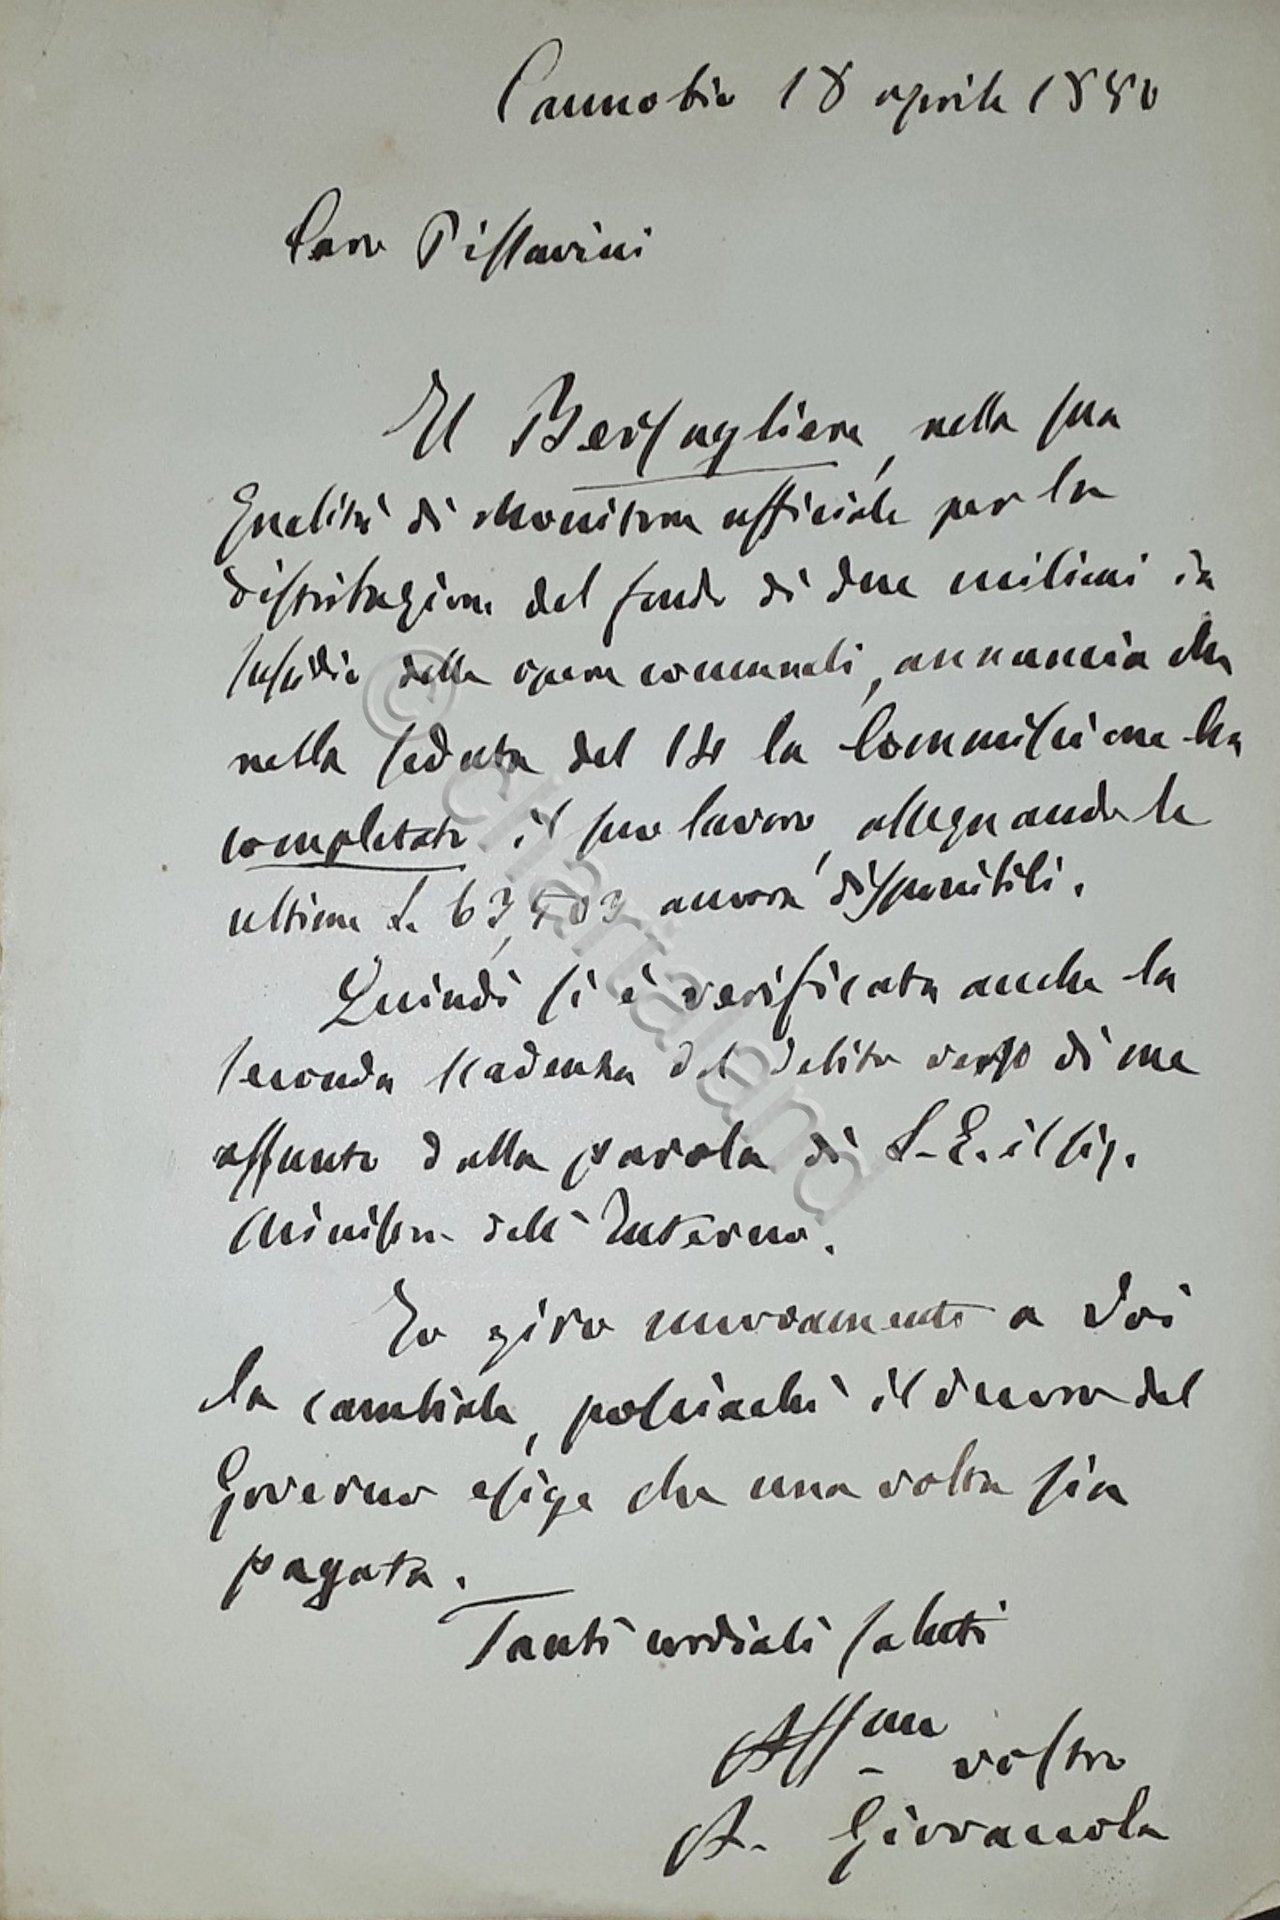 Cannobio 18 aprile 1880
Caro Pissavini
Il Bersagliere, nella sua
qualità di Monitore ufficiale per la
distribuzione del fondo di due milioni in
sussidio delle opere comunali, annuncia che
nella seduta del 14 la Commissione ha
completato il suo lavoro, assegnando le
ultime L. 63,503 ancora disponibili.
Quindi si è verificata anche la
seconda scadenza del debito verso di me
assunto dalla parola di S. E. il sig.
Ministro dell'Interno.
Io giro nuovamente a Voi
la cambiale, poichè il decoro del
Governo esige che una volta sia
pagata.
Tanti cordiali saluti
Affmo vostro
A. Giovanola
© chartaland